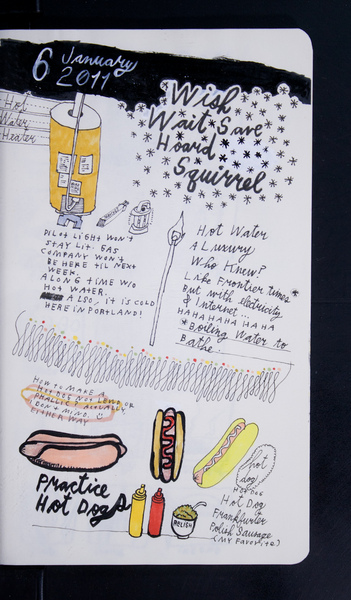 6 January
2011
Hot
Water
Heater
Wish
Wait Save
Hoard
Squirrel
PILOT LIGHT WON'T
STAY LIT. GAS
COMPANY WON'T
BE HERE TIL NEXT
WEEK.
A LONG TIME W/O
HOT WATER.
ALSO, IT IS COLD
HERE IN PORTLAND!
Hot Water
A Luxury.
Who Knew?
Like Frontier times
But with electricity
& Internet...
HAHAHAHAHAHA
*Boiling Water to
Bathe.
HOW TO MAKE A
HOT DOG NOT LEWD OR
PHALLIC? ACTUALLY
I DON'T MIND
EITHER WAY
Practice
Hot Dogs
RELISH
hot
dog
HOT DOG
Hot Dog
Frankfurter
Polish Sausage
(MY FAVORITE)